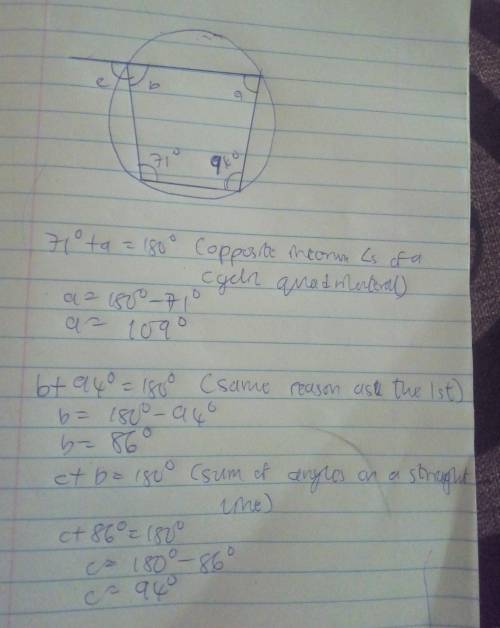 c b a
71° 94°
71° + a = 180° (opposite interior ∠s of a
cyclic quadrilateral)
a = 180° - 71°
a = 109°
b + 94° = 180° (same reason as the 1st)
b = 180° - 94°
b = 86°
c + b = 180° (sum of angles on a straight
line)
c + 86° = 180°
c = 180° - 86°
c = 94°